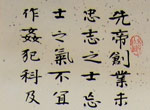 先帝創業未
忠志之士忘
士之氣不宜
作姦犯科及